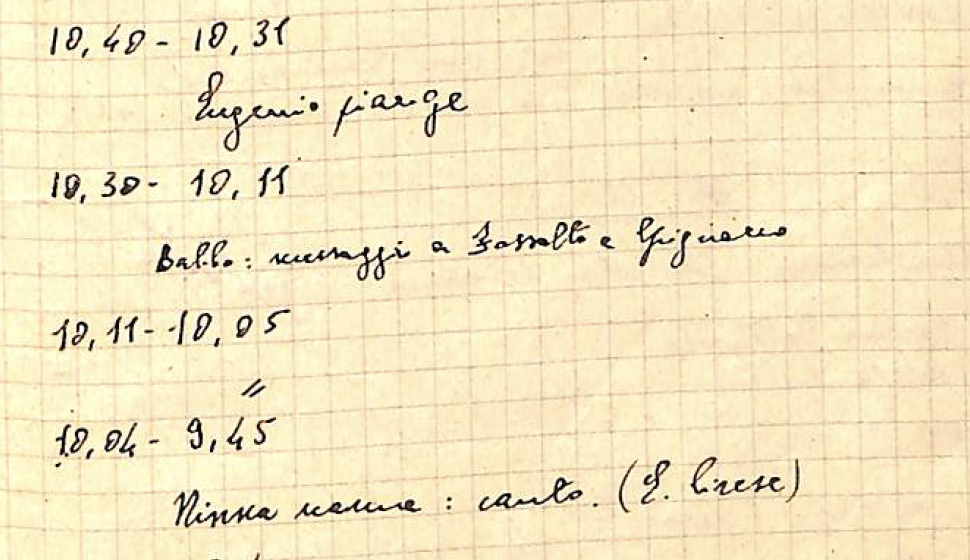 10,40 - 10,31
Eugenio piange
10,30 - 10,11
Ballo: messaggi a Fassalto e
10,11 - 10,05
"
10,04 - 9,45
Ninna nanna : canto. (E. Cirese)